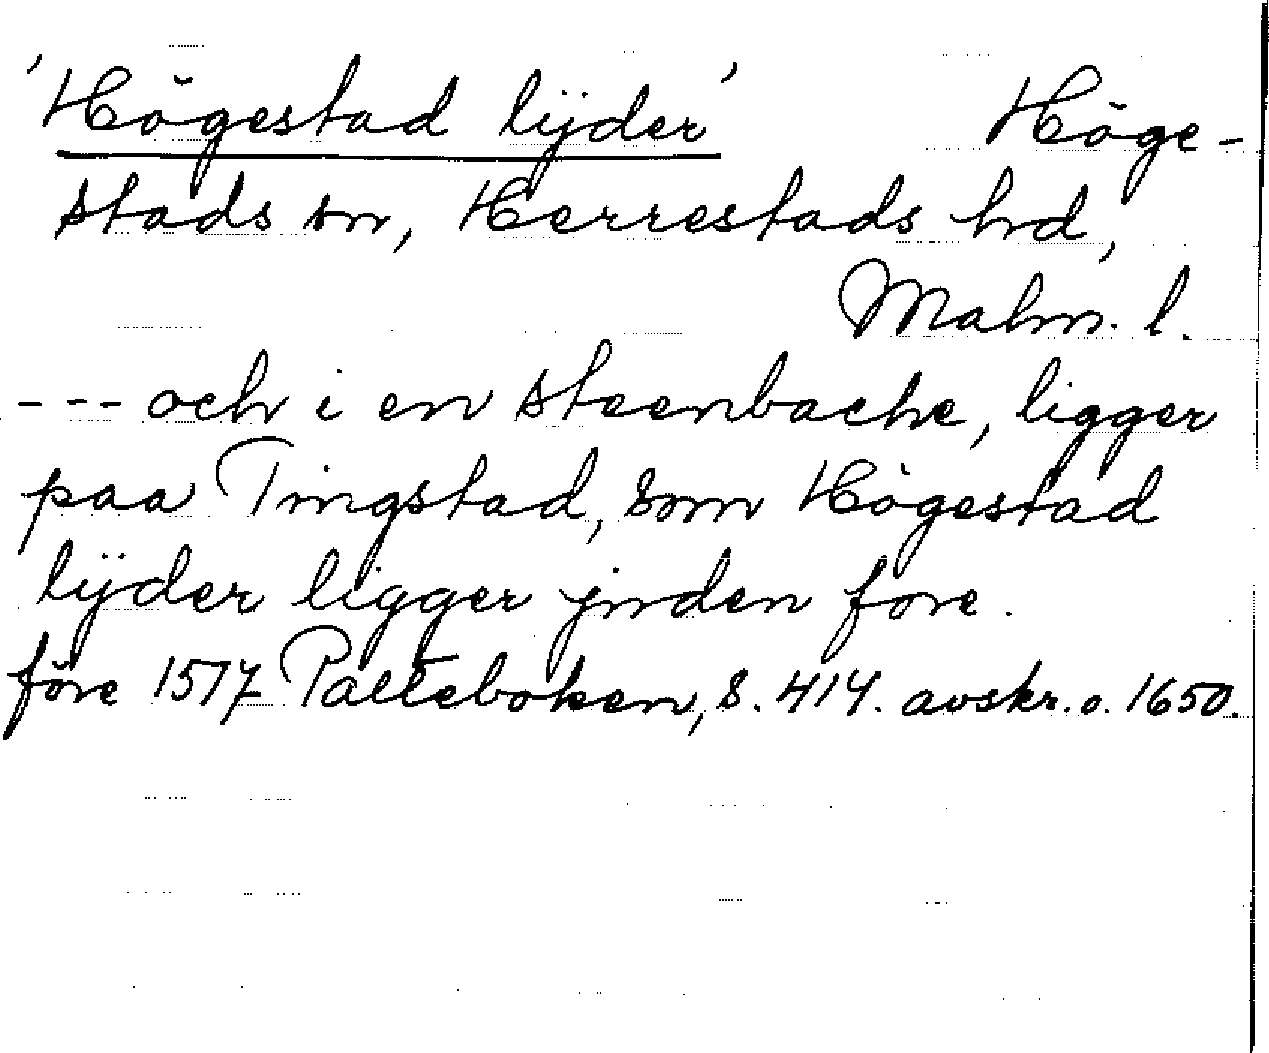 'Högestad lijder' Höge-
stads sn, Herrestads hd,
Malm. l.
--- och i en steenbache, ligger
paa Tingstad, som Högestad
lÿder ligger jnden fore.
före 1517 Palteboken, s. 414. avskr. o. 1650.